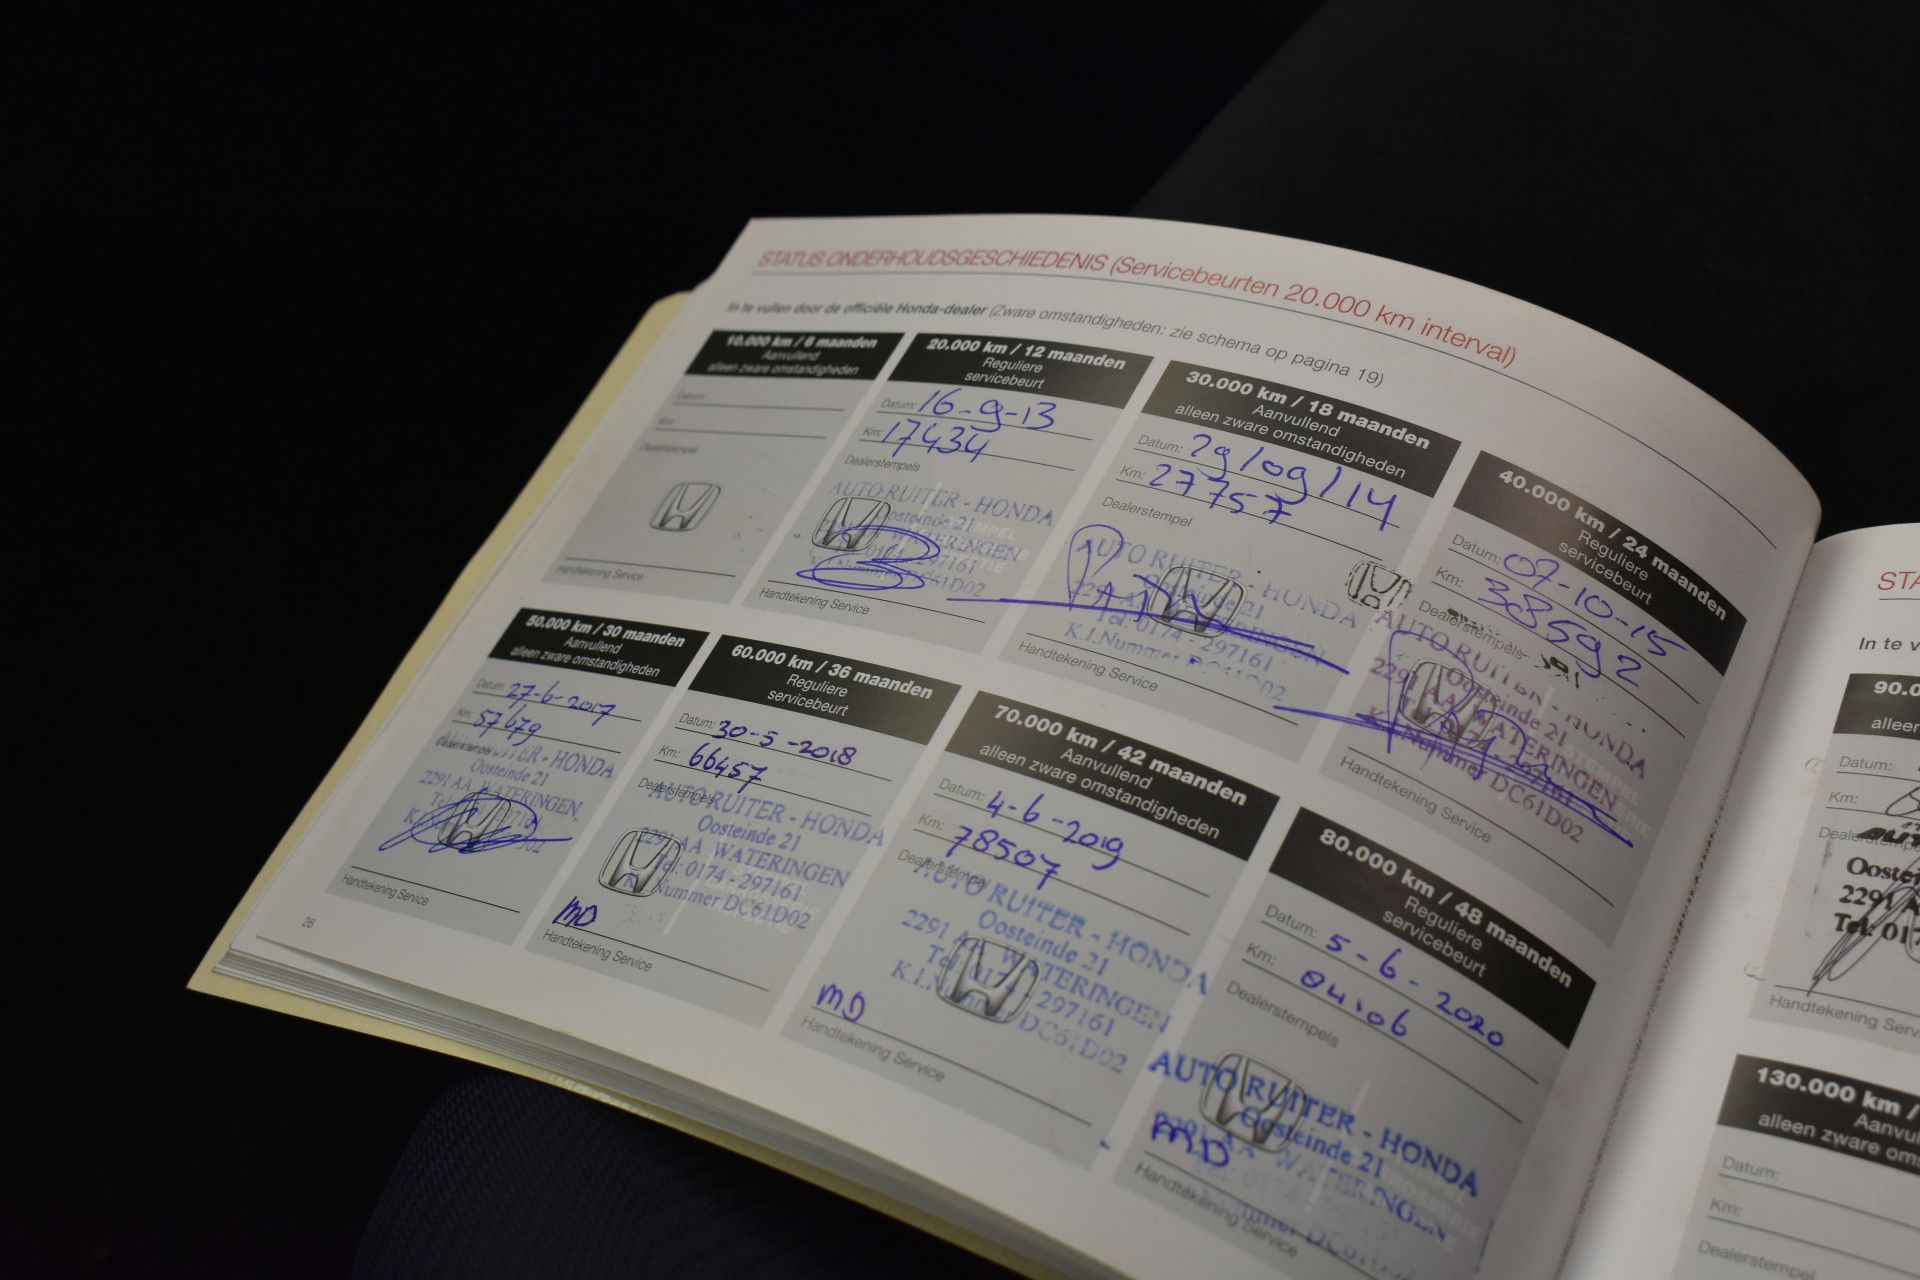 STATUS ONDERHOUDSGESCHIEDENIS (Servicebeurten 20.000 km interval)
In te vullen door de officiële Honda-dealer (Zware omstandigheden: zie schema op pagina 19)
10.000 km / 6 maanden
Aanvullend
alleen zware omstandigheden
Datum:
Km:
Dealerstempel
Handtekening Service
20.000 km / 12 maanden
Reguliere
servicebeurt
Datum: 16-9-13
Km: 17434
Dealerstempels
AUTO RUITER - HONDA
Oosteinde 21
2291 AA WATERINGEN
Tel: 0174 - 297161
K.I.Nummer DC61D02
Handtekening Service
30.000 km / 18 maanden
Aanvullend
alleen zware omstandigheden
Datum: 29/09/14
Km: 27757
Dealerstempel
AUTO RUITER - HONDA
Oosteinde 21
2291 AA WATERINGEN
Tel: 0174 - 297161
K.I.Nummer DC61D02
Handtekening Service
40.000 km / 24 maanden
Reguliere
servicebeurt
Datum: 07-10-15
Km: 38592
Dealerstempels
AUTO RUITER - HONDA
Oosteinde 21
2291 AA WATERINGEN
K.I.Nummer DC61D02
Handtekening Service
50.000 km / 30 maanden
Aanvullend
alleen zware omstandigheden
Datum: 27-6-2017
Km: 57679
Dealerstempel
RUITER - HONDA
Oosteinde 21
2291 AA WATERINGEN
Handtekening Service
60.000 km / 36 maanden
Reguliere
servicebeurt
Datum: 30-5-2018
Km: 66457
Dealerstempels
AUTO RUITER - HONDA
Oosteinde 21
2291 AA WATERINGEN
Tel: 0174 - 297161
K.I.Nummer DC61D02
MD
Handtekening Service
70.000 km / 42 maanden
Aanvullend
alleen zware omstandigheden
Datum: 4-6-2019
Km: 78507
Dealerstempel
AUTO RUITER - HONDA
Oosteinde 21
2291 AA WATERINGEN
Tel: 0174 - 297161
K.I.Nummer DC61D02
MD
Handtekening Service
80.000 km / 48 maanden
Reguliere
servicebeurt
Datum: 5-6-2020
Km:
Dealerstempels
AUTO RUITER - HONDA
Oosteinde 21
2291 AA WATERINGEN
MD
Handtekening Service
26
STA
In te v
90.0
alleen
Datum:
Km:
Ooste
2291 A
Tel: 017
Handtekening Serv
130.000 km /
Aanvul
alleen zware oms
Datum:
Km:
Dealerstempel